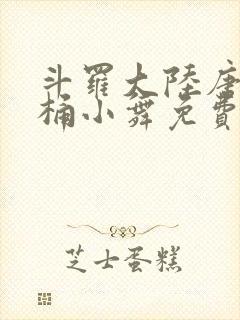 斗羅大陸唐
桶小舞免費
芝士蛋糕